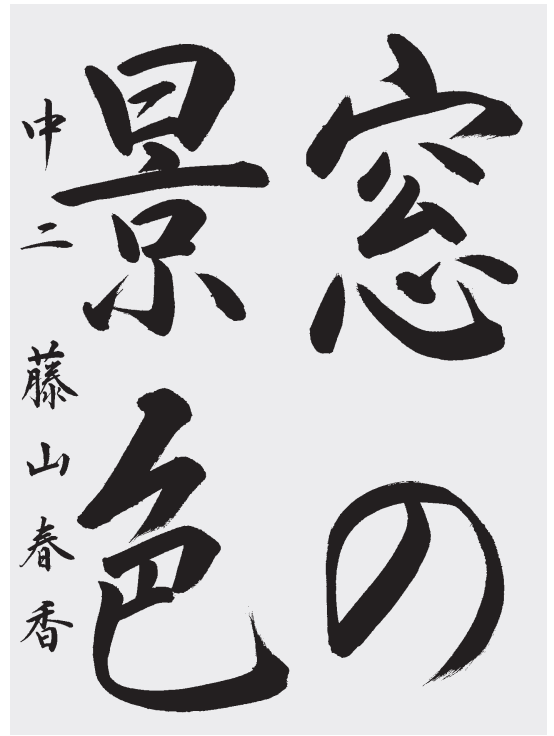 窓の
景色
中二 藤山春香